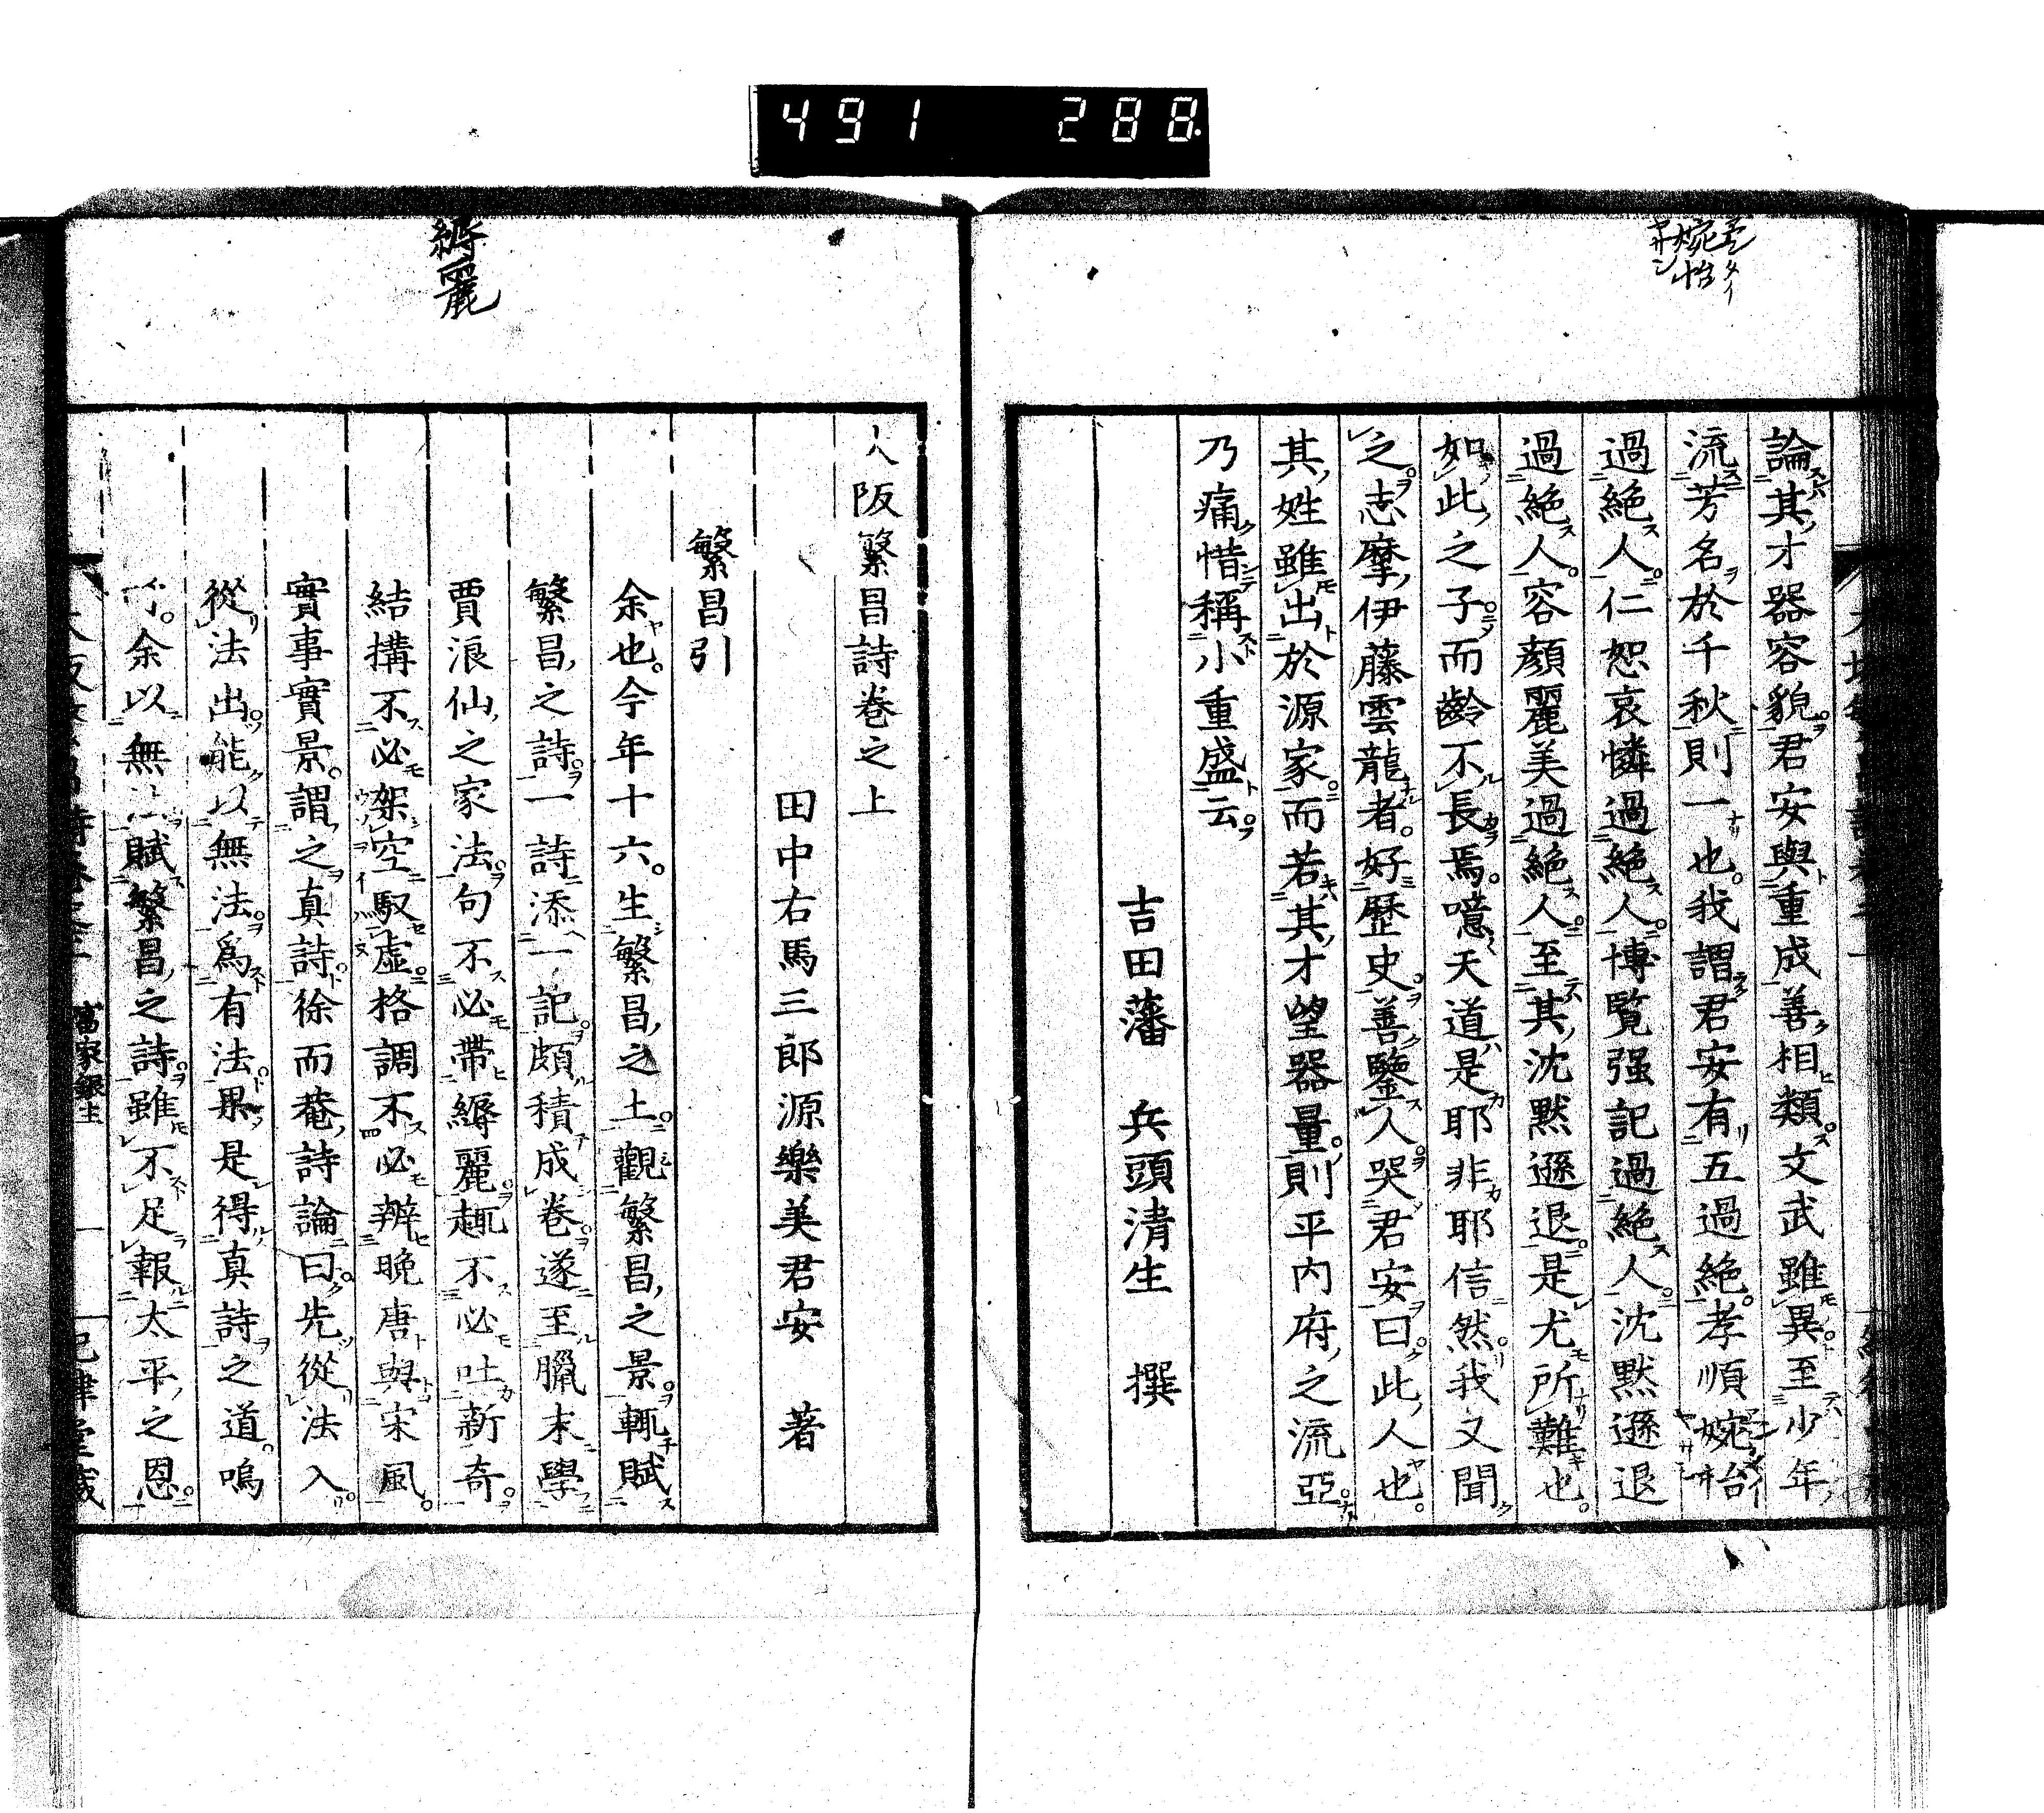 491 288
婉怡
論其才器容貌君安與重成善相類文武雖異至少年
流芳名於千秋則一也我謂君安有五過絶孝順婉怡
過絶人仁恕哀憐過絶人博覧强記過絶人沈默遜退
過絶人容顏麗美過絶人至其沈默遜退是尤所難也
如此之子而齡不長焉噫天道是耶非耶信然我又聞
之志摩伊藤雲龍者好歷史善鑒人哭君安曰此人也
其姓雖出於源家而若其才望器量則平内府之流亞
乃痛惜稱小重盛云
吉田藩 兵頭清生 撰
縟麗
大阪繁昌詩卷之上
田中右馬三郎源樂美君安 著
繁昌引
余也今年十六生繁昌之土觀繁昌之景輒賦
繁昌之詩一詩添一記頗積成卷遂至臘末學
賈浪仙之家法句不必帶縟麗趣不必吐新奇
結搆不必架空馭虛格調不必辨晩唐與宋風
實事實景謂之真詩徐而菴詩論曰先從法入
從法出能以無法爲有法果是得真詩之道嗚
呼余以無法賦繁昌之詩雖不足報太平之恩
大阪繁昌詩卷之上 富家銀主 一